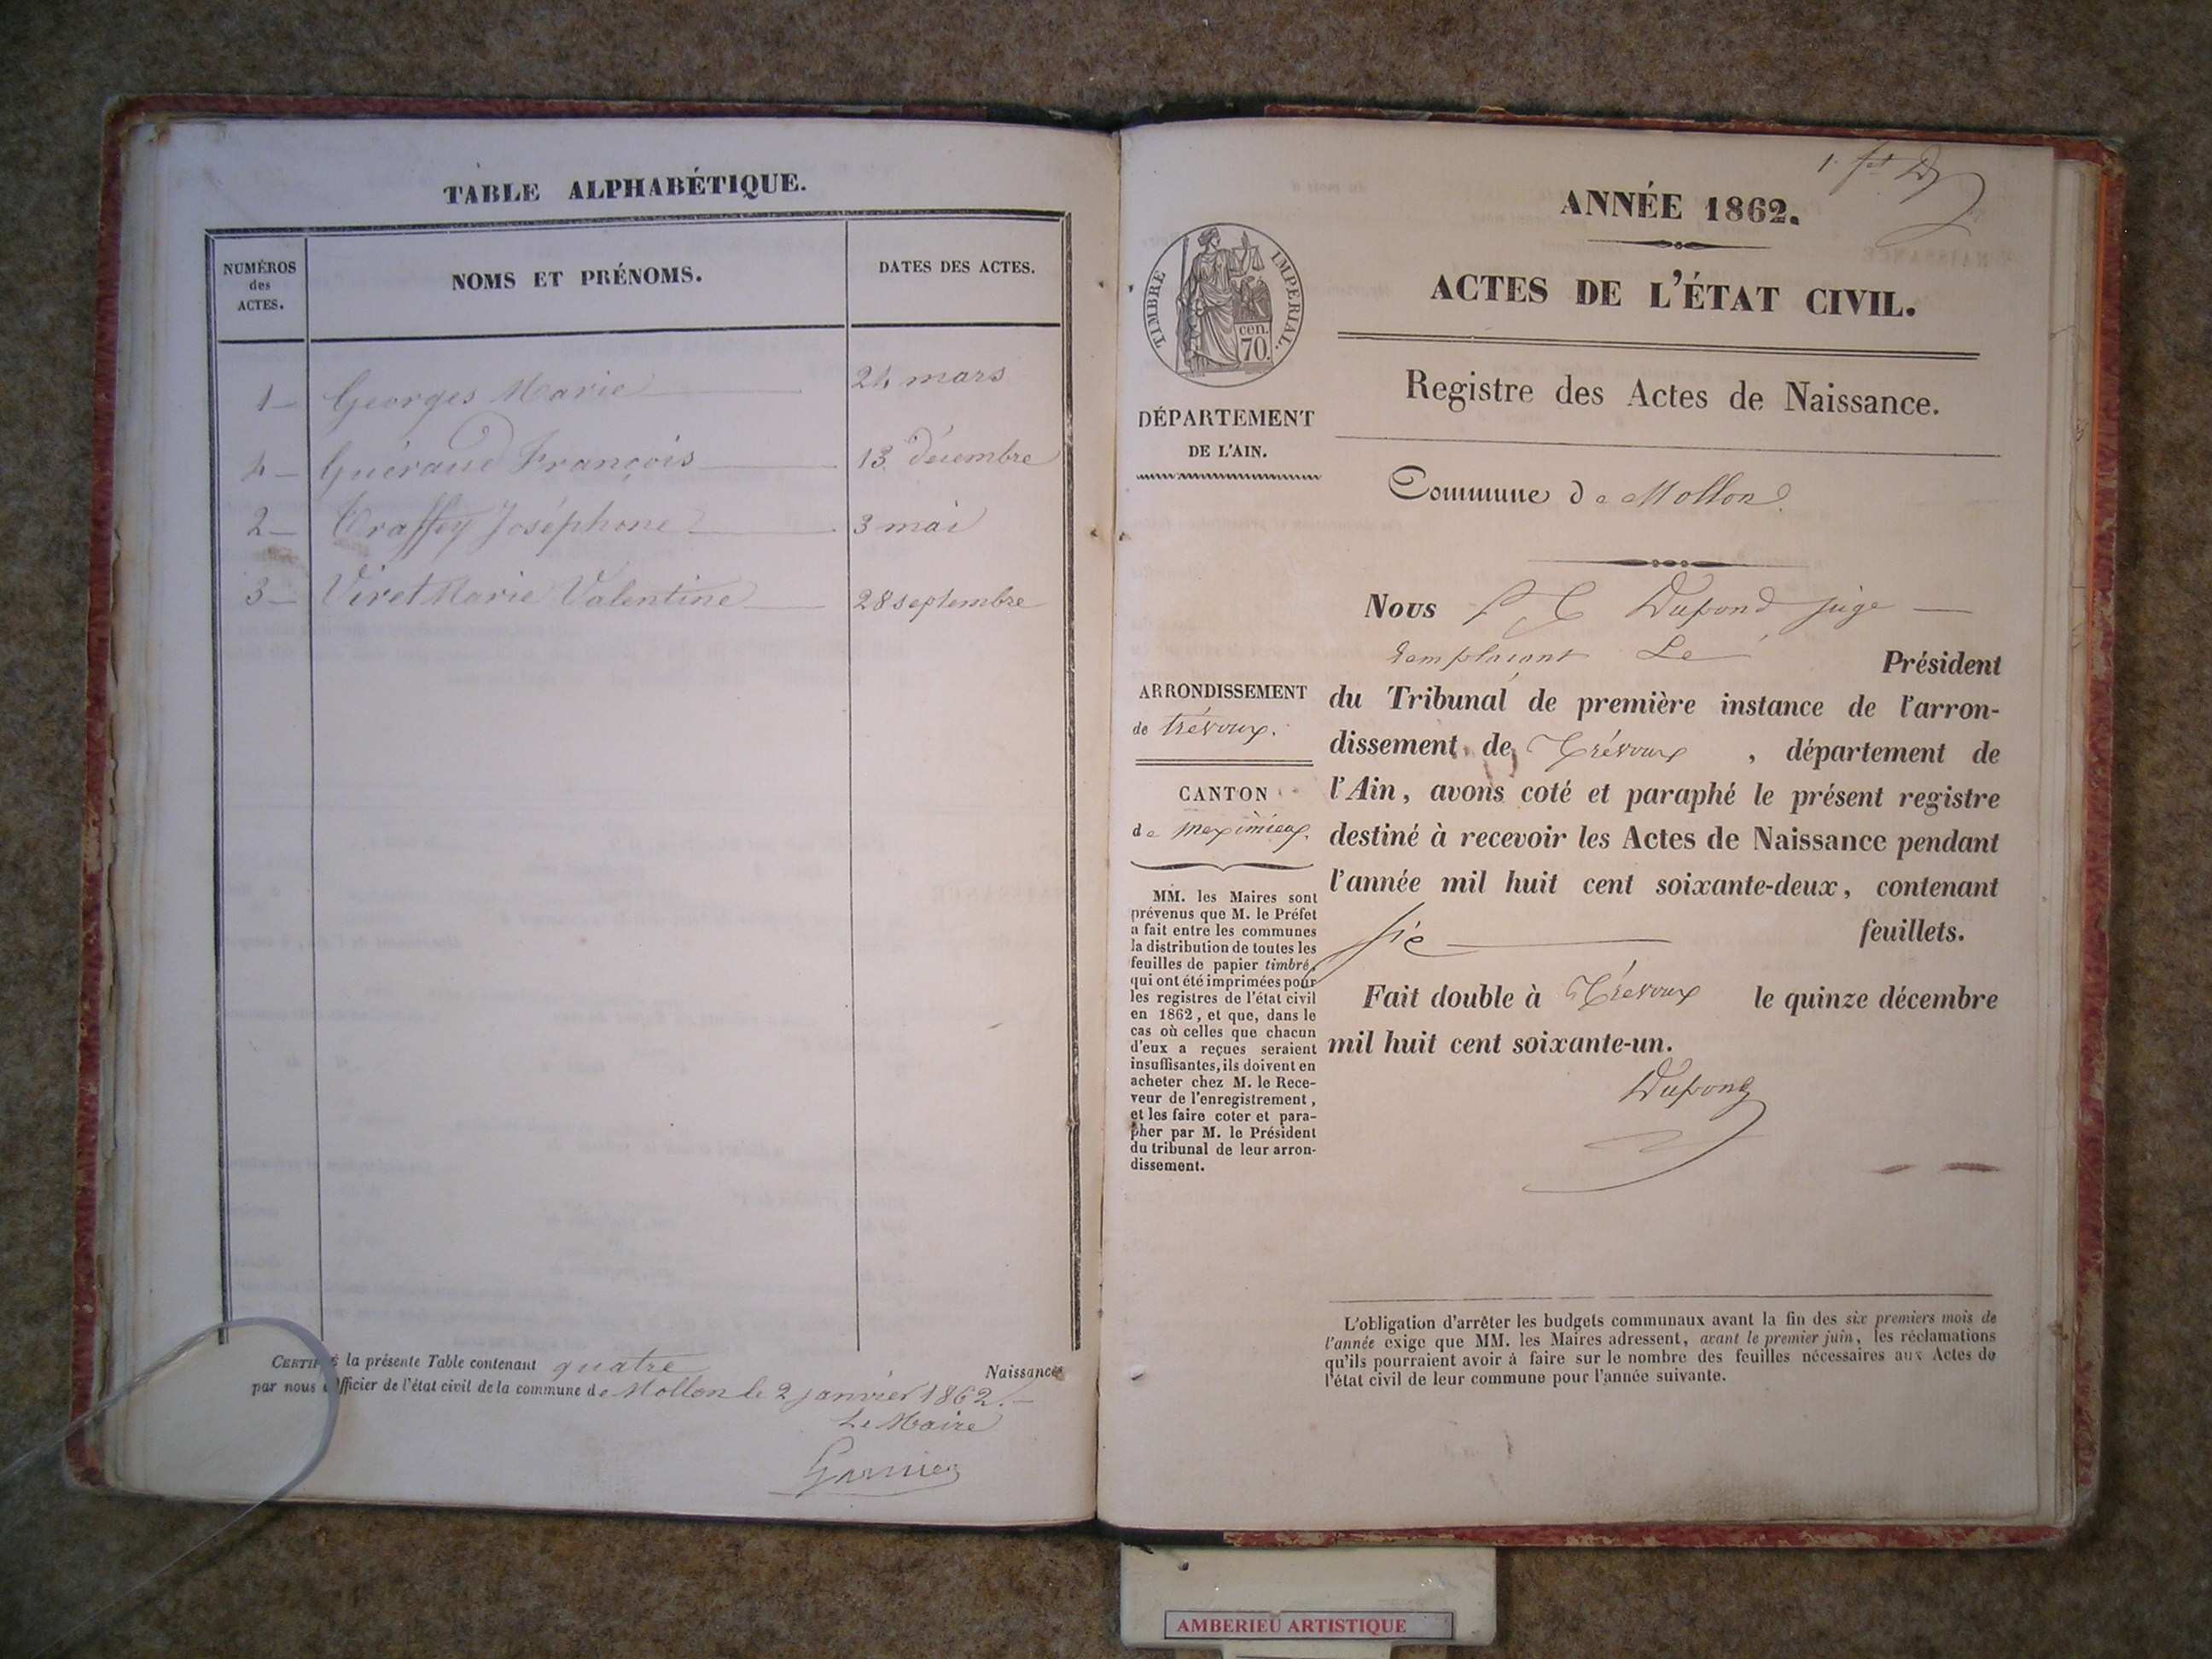 TABLE ALPHABÉTIQUE.
NUMÉROS
des
ACTES.
NOMS ET PRÉNOMS.
DATES DES ACTES.
1 — Georges Marie — 24 mars
4 — Guéraud François — 13 décembre
2 — Traffey Joséphine — 3 mai
3 — Viret Marie Valentine — 28 septembre
CERTIFIÉ la présente Table contenant quatre Naissances
par nous Officier de l'état civil de la commune de Mollon le 2 janvier 1862.
Le Maire
Garnier
1.
ANNÉE 1862.
ACTES DE L'ÉTAT CIVIL.
TIMBRE IMPERIAL.
cen.
70.
DÉPARTEMENT
DE L'AIN.
Registre des Actes de Naissance.
Commune de Mollon
Nous Dupond juge
remplaçant Le Président
du Tribunal de première instance de l'arron-
dissement de Trévoux, département de
l'Ain, avons coté et paraphé le présent registre
destiné à recevoir les Actes de Naissance pendant
l'année mil huit cent soixante-deux, contenant
six feuillets.
Fait double à Trévoux le quinze décembre
mil huit cent soixante-un.
Dupond
ARRONDISSEMENT
de trévoux.
CANTON
de meximieux.
MM. les Maires sont
prévenus que M. le Préfet
a fait entre les communes
la distribution de toutes les
feuilles de papier timbré,
qui ont été imprimées pour
les registres de l'état civil
en 1862, et que, dans le
cas où celles que chacun
d'eux a reçues seraient
insuffisantes, ils doivent en
acheter chez M. le Rece-
veur de l'enregistrement,
et les faire coter et para-
pher par M. le Président
du tribunal de leur arron-
dissement.
L'obligation d'arrêter les budgets communaux avant la fin des six premiers mois de
l'année exige que MM. les Maires adressent, avant le premier juin, les réclamations
qu'ils pourraient avoir à faire sur le nombre des feuilles nécessaires aux Actes de
l'état civil de leur commune pour l'année suivante.
AMBERIEU ARTISTIQUE